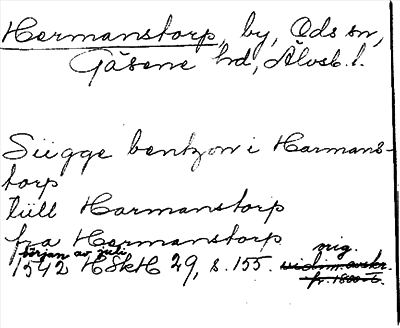 Hermanstorp, by, Ods sn,
Gäsene hd, Älvsb. l.
Siigge bentzon i Harmans-
torp
tiill Harmanstorp
fra Harmanstorp
början av juli orig.
1542 HSkH 29, s. 155. vidim. avskr.
fr. 1800-t.